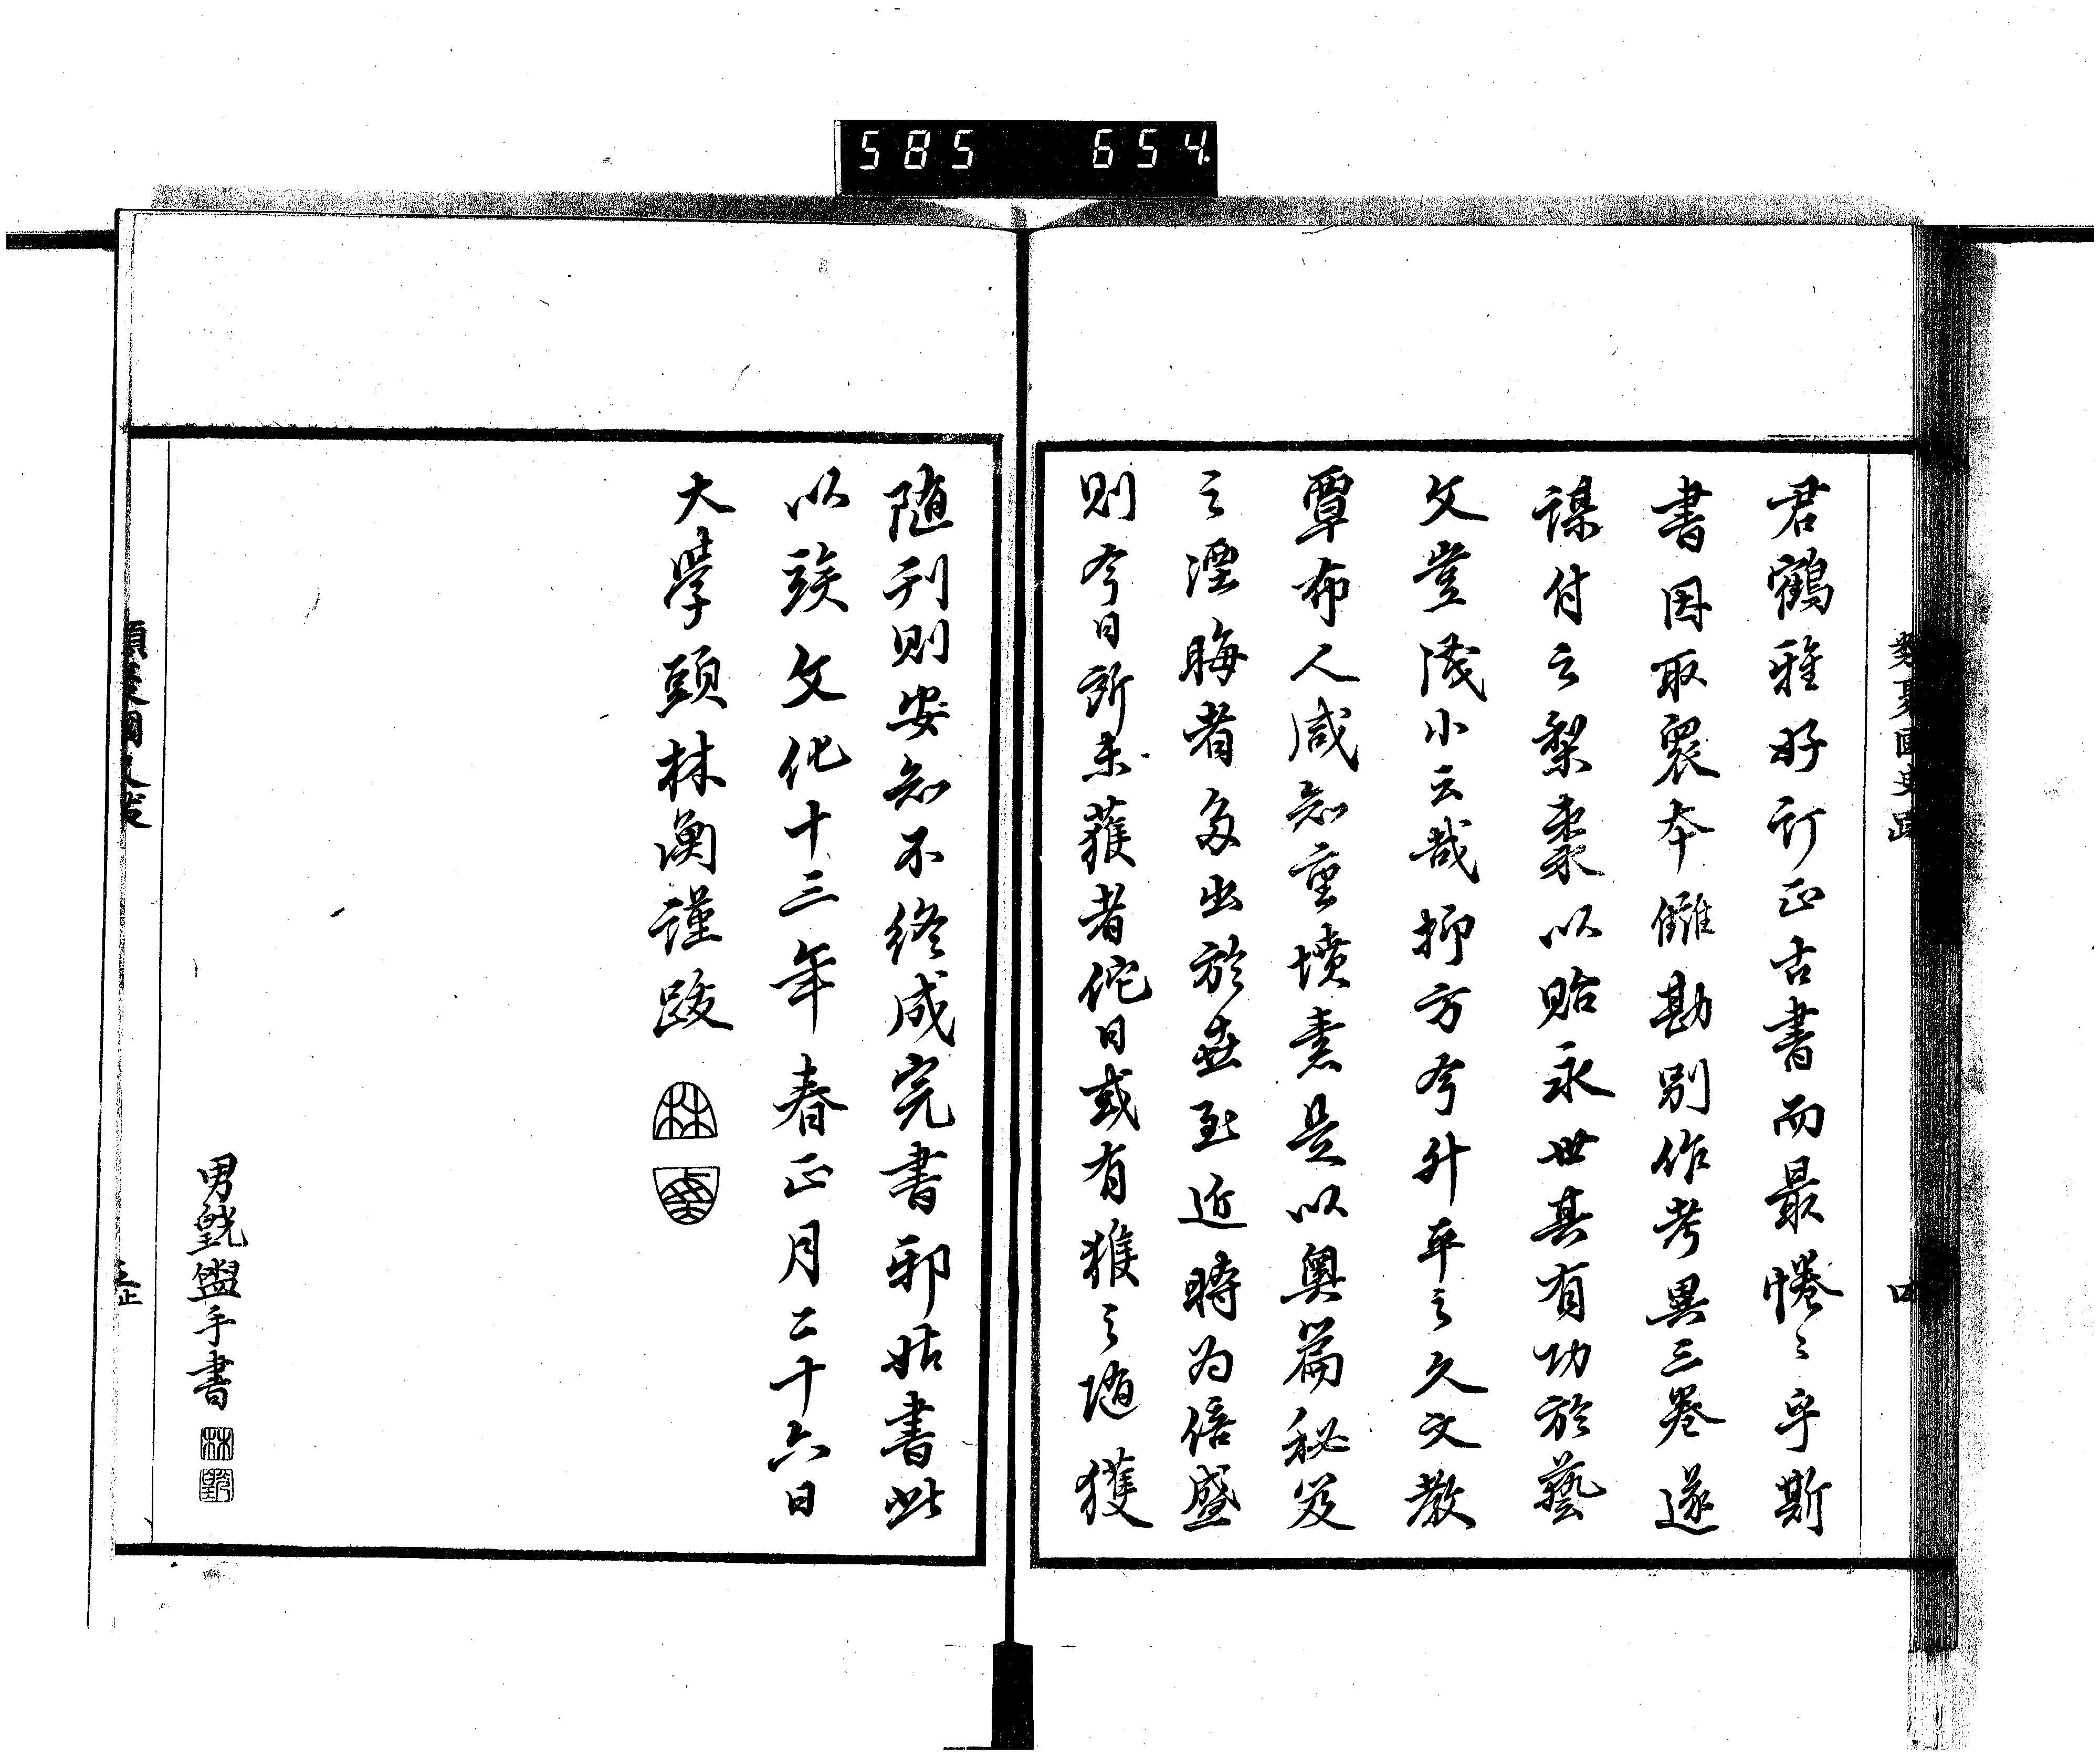 585 654
類聚國史跋 四
君鶴雅好訂正古書而最惓〻乎斯
書因取衆本讎勘別作考異三卷遂
謀付之梨棗以貽永世其有功於藝
文豈淺小云哉抑方今升平之久文教
覃布人咸知重墳素是以奧篇秘笈
之湮晦者多出於世至近時為倍盛
則今日所未獲者佗日或有獲之隨獲
隨刊則安知不終成完書邪姑書此
以竢文化十三年春正月二十六日
大學頭林衡謹跋
林
男 手書
林
類聚國史跋 五止